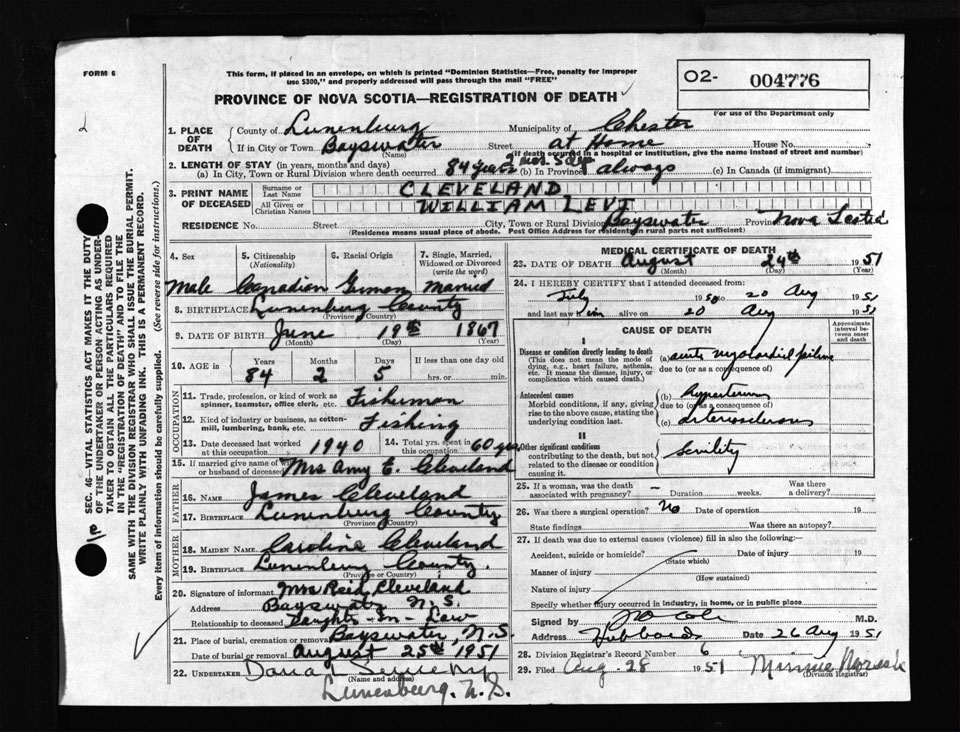 FORM 6
This form, if placed in an envelope, on which is printed "Dominion Statistics—Free, penalty for improper
use $300," and properly addressed will pass through the mail "FREE"
O2- 004776
For use of the Department only
PROVINCE OF NOVA SCOTIA—REGISTRATION OF DEATH
1. PLACE OF DEATH
County of Lunenburg Municipality of Chester
If in City or Town Bayswater Street at Home House No.
(Name) (If death occurred in a hospital or institution, give the name instead of street and number)
2. LENGTH OF STAY (in years, months and days)
(a) In City, Town or Rural Division where death occurred 84 years 2 mos. 5 dys (b) In Province always (c) In Canada (if immigrant)
3. PRINT NAME OF DECEASED
Surname or Last Name CLEVELAND
All Given or Christian Names WILLIAM LEVI
RESIDENCE No. Street City, Town or Rural Division Bayswater Province Nova Scotia
(Residence means usual place of abode. Post Office Address for residents in rural parts not sufficient)
SEC. 46—VITAL STATISTICS ACT MAKES IT THE DUTY
OF THE UNDERTAKER OR PERSON ACTING AS UNDER-
TAKER TO OBTAIN ALL THE PARTICULARS REQUIRED
IN THE "REGISTRATION OF DEATH" AND TO FILE THE
SAME WITH THE DIVISION REGISTRAR WHO SHALL ISSUE THE BURIAL PERMIT.
WRITE PLAINLY WITH UNFADING INK. THIS IS A PERMANENT RECORD.
Every item of information should be carefully supplied. (See reverse side for instructions.)
4. Sex 5. Citizenship (Nationality) 6. Racial Origin 7. Single, Married, Widowed or Divorced (write the word)
Male Canadian German Married
8. BIRTHPLACE Lunenburg County
(Province or Country)
9. DATE OF BIRTH June 19th 1867
(Month) (Day) (Year)
10. AGE in Years Months Days If less than one day old
84 2 5 hrs. or min.
OCCUPATION
11. Trade, profession, or kind of work as
spinner, teamster, office clerk, etc. Fisherman
12. Kind of industry or business, as cotton-
mill, lumbering, bank, etc. Fishing
13. Date deceased last worked at this occupation 1940 14. Total yrs. spent in this occupation 60 yrs
15. If married give name of wife or husband of deceased Mrs Amy E. Cleveland
FATHER
16. NAME James Cleveland
17. BIRTHPLACE Lunenburg County
(Province or Country)
MOTHER
18. MAIDEN NAME Caroline Cleveland
19. BIRTHPLACE Lunenburg County.
(Province or Country)
20. Signature of informant Mrs Reid Cleveland
Address Bayswater N.S.
Relationship to deceased Daughter-In-Law
21. Place of burial, cremation or removal Bayswater, N.S.
Date of burial or removal August 25th 1951
22. UNDERTAKER Dana
(Name and address)
Lunenburg. N.S.
MEDICAL CERTIFICATE OF DEATH
23. DATE OF DEATH August 24th 1951
(Month) (Day) (Year)
24. I HEREBY CERTIFY that I attended deceased from:
July 1950 to 20 Aug 1951
and last saw him alive on 20 Aug 1951
CAUSE OF DEATH
Approximate interval between onset and death
I
Disease or condition directly leading to death
(This does not mean the mode of
dying, e.g., heart failure, asthenia,
etc. It means the disease, injury, or
complication which caused death.)
(a) acute myocardial failure
due to (or as a consequence of)
Antecedent causes
Morbid conditions, if any, giving
rise to the above cause, stating the
underlying condition last.
(b) Hypertension
due to (or as a consequence of)
(c) Arteriosclerosis
II
Other significant conditions
contributing to the death, but not
related to the disease or condition
causing it.
Senility
25. If a woman, was the death associated with pregnancy? — Duration weeks. Was there a delivery?
26. Was there a surgical operation? No Date of operation 19
State findings Was there an autopsy?
27. If death was due to external causes (violence) fill in also the following:—
Accident, suicide or homicide? Date of injury 19
(State which)
Manner of injury
(How sustained)
Nature of injury
Specify whether injury occurred in industry, in home, or in public place
Signed by Cole M.D.
Address Hubbards Date 26 Aug 1951
28. Division Registrar's Record Number 6
29. Filed Aug. 28 1951 Minnie
(Division Registrar)